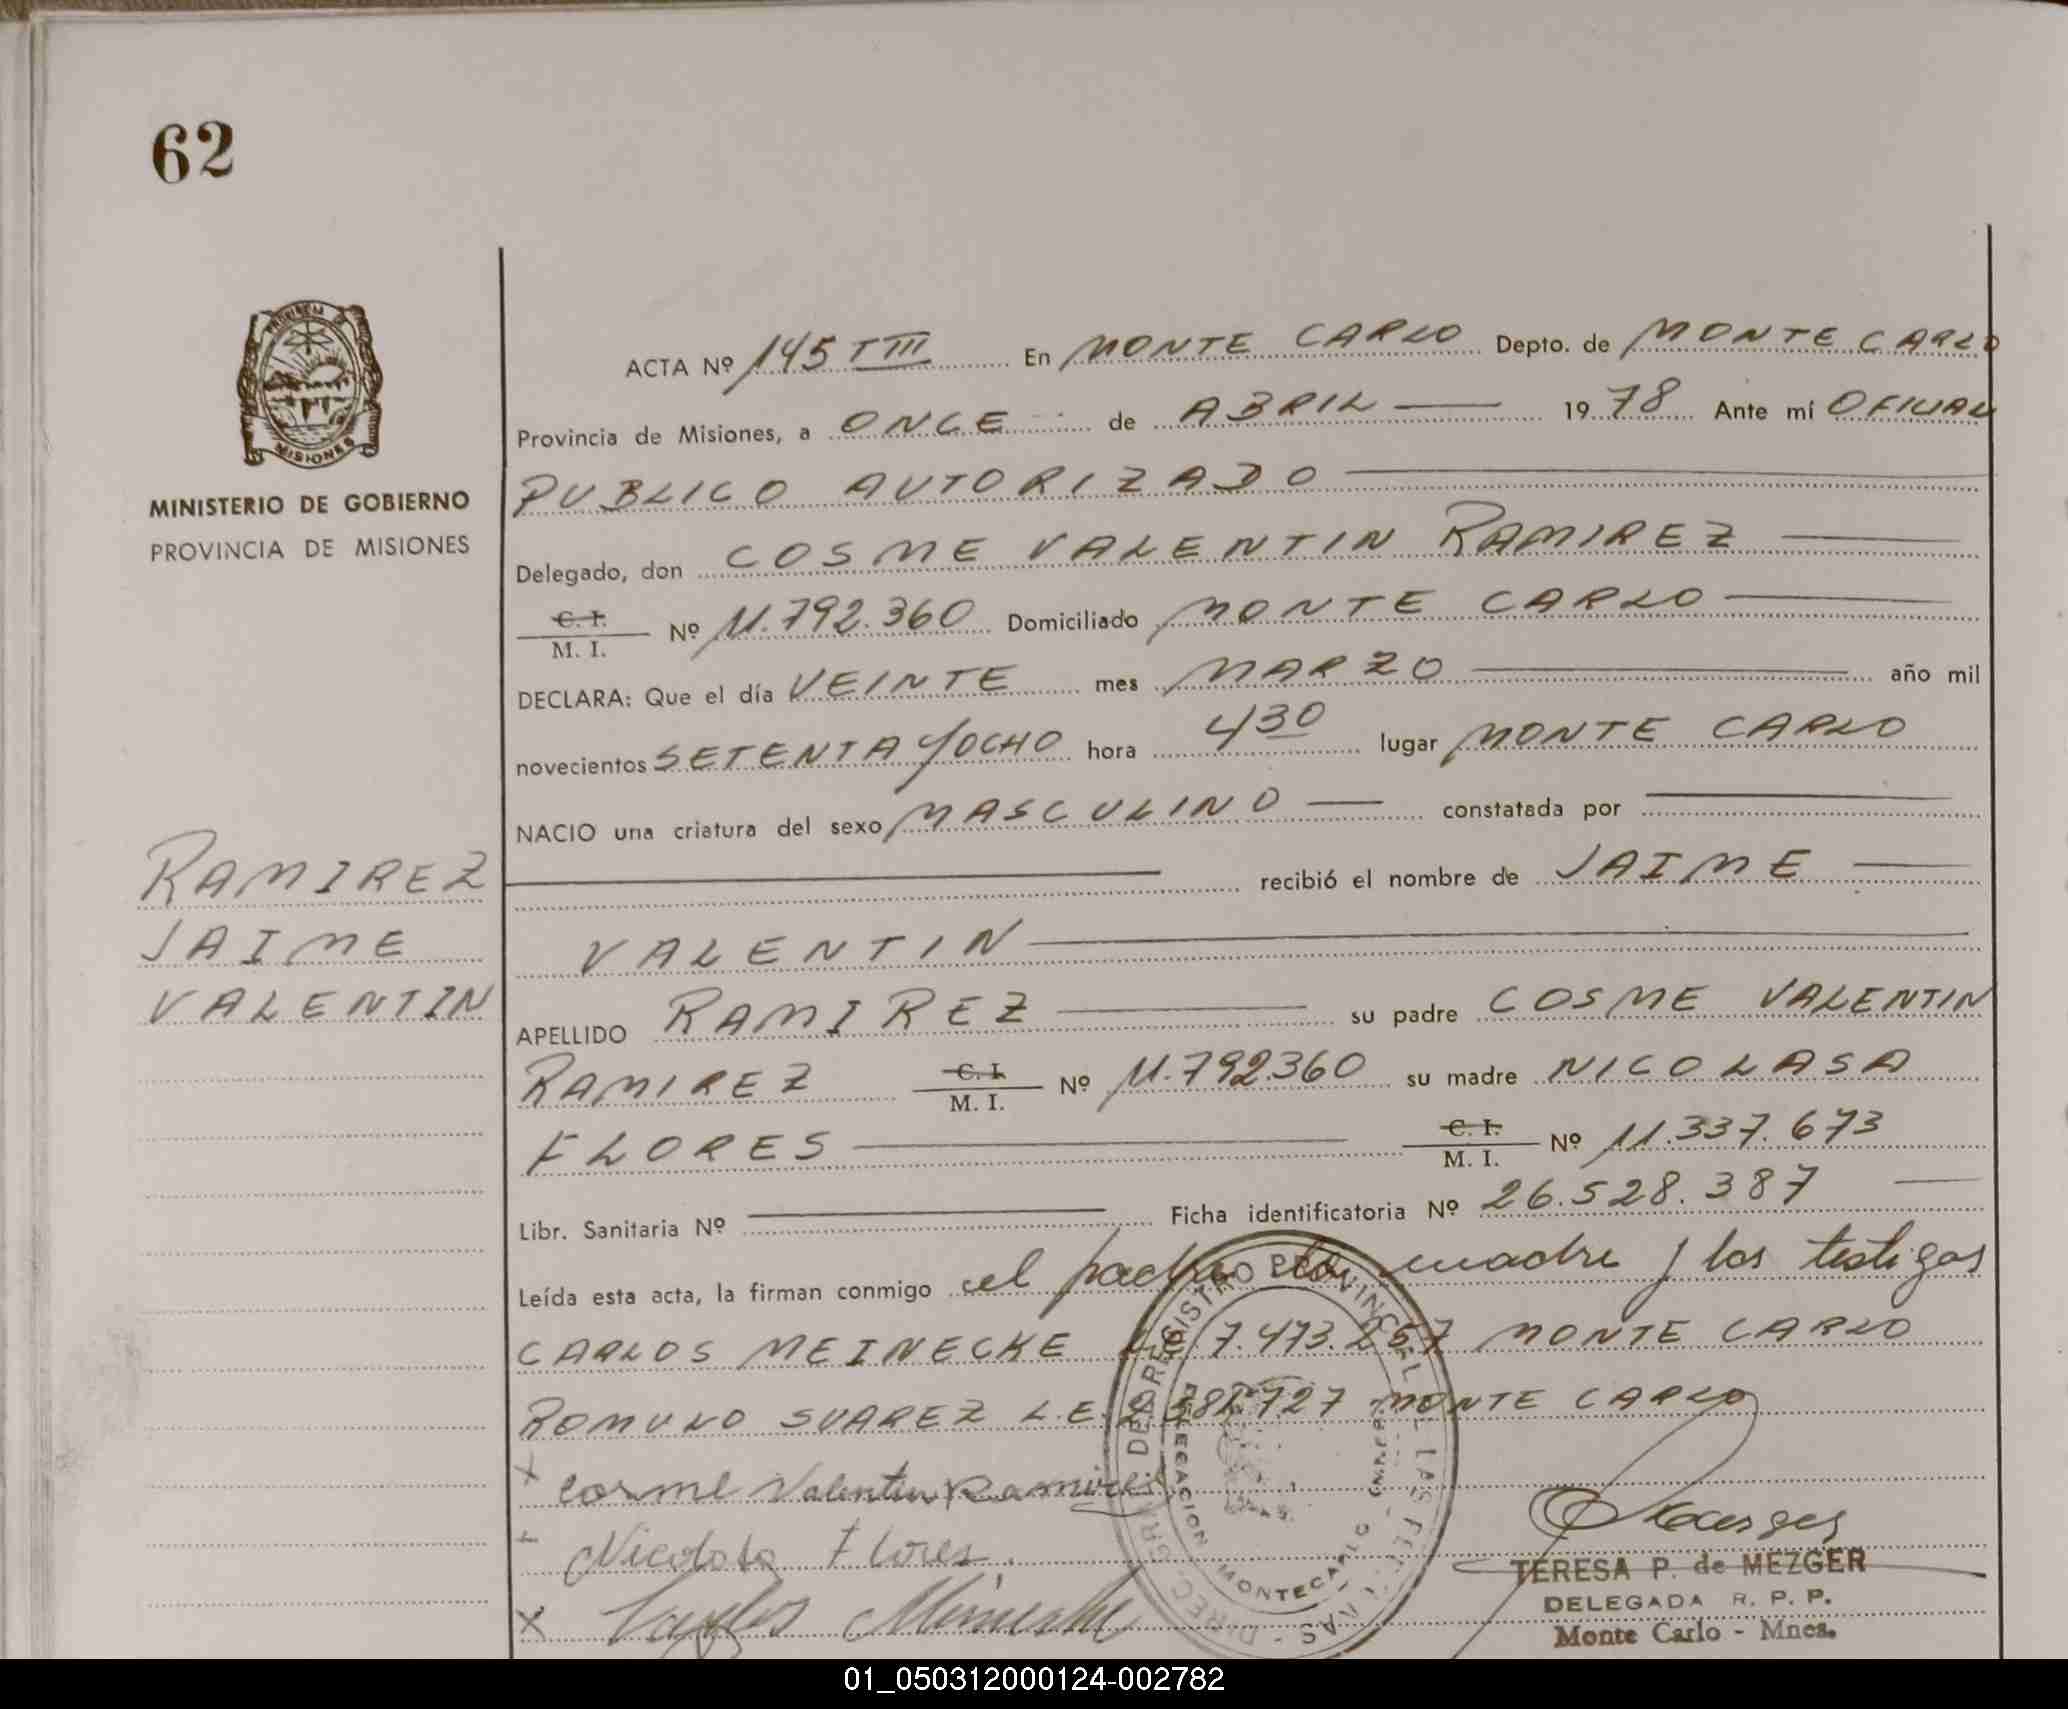 62
PROVINCIA DE
MISIONES
MINISTERIO DE GOBIERNO
PROVINCIA DE MISIONES
RAMIREZ
JAIME
VALENTIN
ACTA Nº 145 TIII En MONTE CARLO Depto. de MONTE CARLO
Provincia de Misiones, a ONCE de ABRIL 1978 Ante mí OFICIAL
PUBLICO AUTORIZADO
Delegado, don COSME VALENTIN RAMIREZ
C. I.
M. I. Nº 11.792.360 Domiciliado MONTE CARLO
DECLARA: Que el día VEINTE mes MARZO año mil
novecientos SETENTA Y OCHO hora 4 30 lugar MONTE CARLO
NACIO una criatura del sexo MASCULINO constatada por
recibió el nombre de JAIME
VALENTIN
APELLIDO RAMIREZ su padre COSME VALENTIN
RAMIREZ C. I. M. I. Nº 11.792.360 su madre NICOLASA
FLORES C. I. M. I. Nº 11.337.673
Libr. Sanitaria Nº Ficha identificatoria Nº 26.528.387
Leída esta acta, la firman conmigo el padre la madre y los testigos
CARLOS MEINECKE 7.473.257 MONTE CARLO
ROMULO SUAREZ L.E. MONTE CARLO
Cosme Valentin Ramirez
Nicolasa Flores.
Carlos Meinecke
DELEGACION MONTECARLO
TERESA P. de MEZGER
DELEGADA R. P. P.
Monte Carlo - Mnes.
01_050312000124-002782